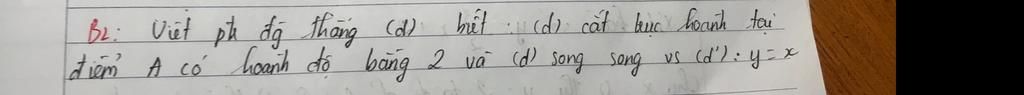 B2: Viết ph đg thẳng (d) biết: (d) cắt trục hoành tại
điểm A có hoành độ bằng 2 và (d) song song vs (d'): y = x